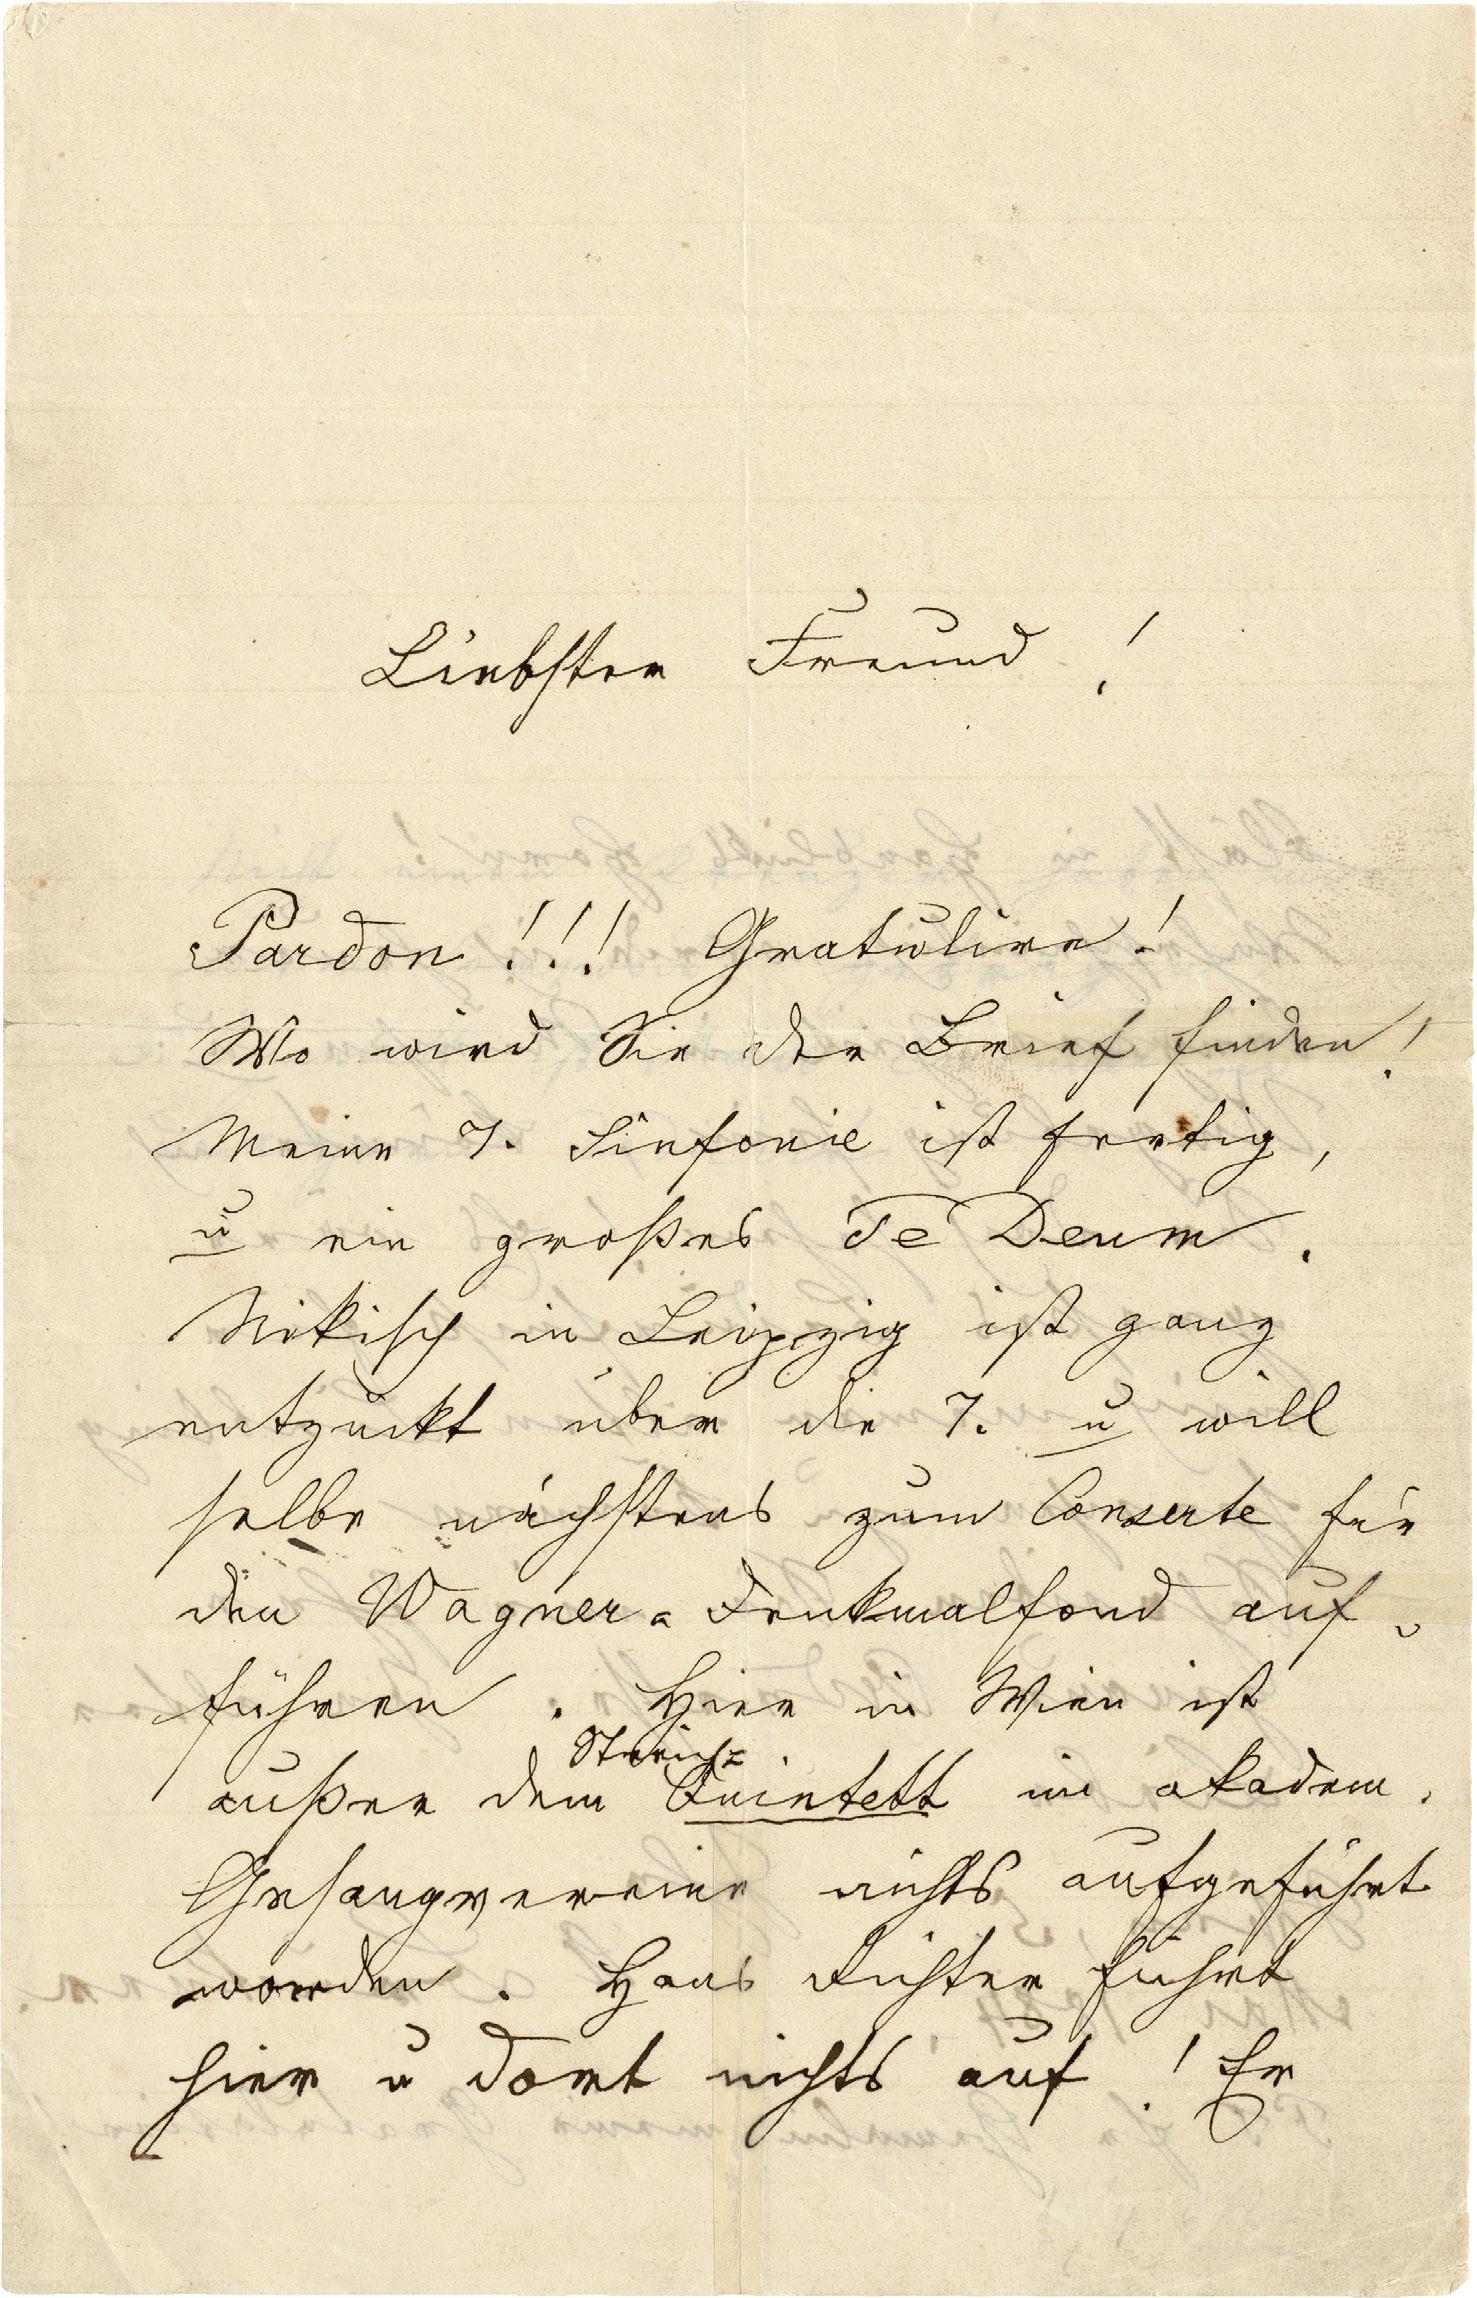 Liebster Freund!
Pardon!!! Gratulire!
Wo wird Sie der Brief finden!
Meine 7. Sinfonie ist fertig,
u ein großes Te Deum.
Nikisch in Leipzig ist ganz
entzückt über die 7. u will
selbe nächstens zum Conzerte für
den Wagner-Denkmalfond auf-
führen. Hier in Wien ist
Streich-
außer dem Quintett im akadem.
Gesangvereine nichts aufgeführt
worden. Hans Richter führt
hier u dort nichts auf! Er